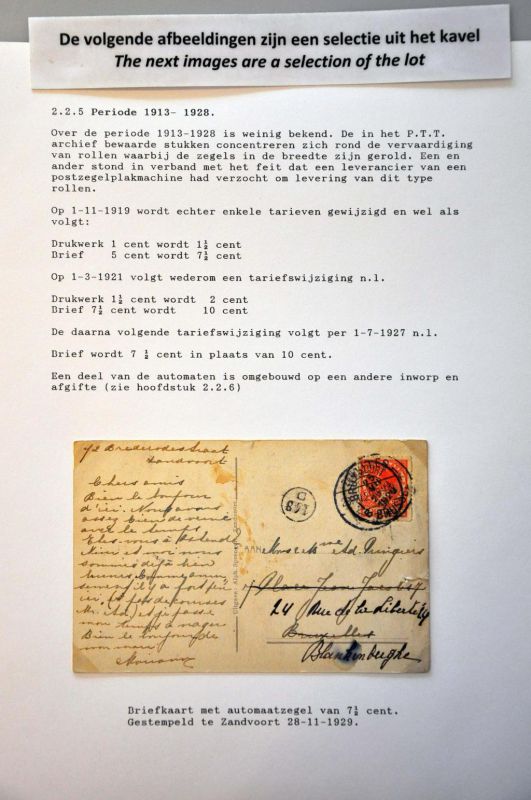 De volgende afbeeldingen zijn een selectie uit het kavel
The next images are a selection of the lot
2.2.5 Periode 1913- 1928.
Over de periode 1913-1928 is weinig bekend. De in het P.T.T.
archief bewaarde stukken concentreren zich rond de vervaardiging
van rollen waarbij de zegels in de breedte zijn gerold. Een en
ander stond in verband met het feit dat een leverancier van een
postzegelplakmachine had verzocht om levering van dit type
rollen.
Op 1-11-1919 wordt echter enkele tarieven gewijzigd en wel als
volgt:
Drukwerk 1 cent wordt 1½ cent
Brief 5 cent wordt 7½ cent
Op 1-3-1921 volgt wederom een tariefswijziging n.l.
Drukwerk 1½ cent wordt 2 cent
Brief 7½ cent wordt 10 cent
De daarna volgende tariefswijziging volgt per 1-7-1927 n.l.
Brief wordt 7 ½ cent in plaats van 10 cent.
Een deel van de automaten is omgebouwd op een andere inworp en
afgifte (zie hoofdstuk 2.2.6)
72 Brederodestraat
Zandvoort
Chers amis
Bien le bonjour
d'ici. Nous avons
assez bien de
avec le temps
Etes-vous à Ostende
moi nous
sommes déjà bien
ici
je passe
mon temps à nager
Bien le bonjour de
mon mari
AAN
Ad.
Place Jean Jacobs
24 Rue de la Liberté
Bruxelles
Blankenberghe
Briefkaart met automaatzegel van 7½ cent.
Gestempeld te Zandvoort 28-11-1929.